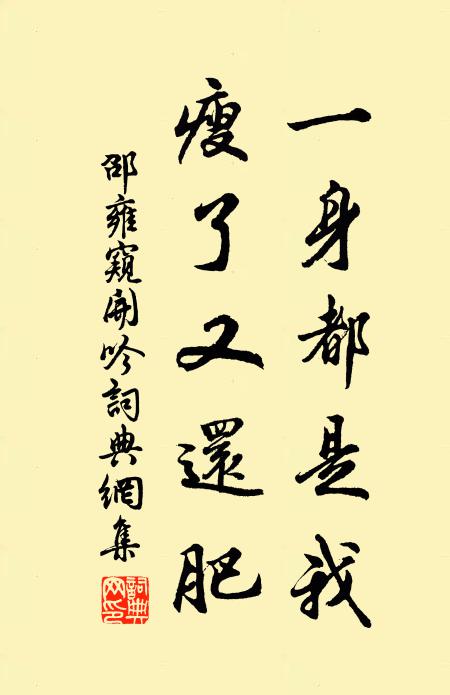 一身都是我
瘦了又還肥
邵雍窺開吟詞典網集
詞典网印